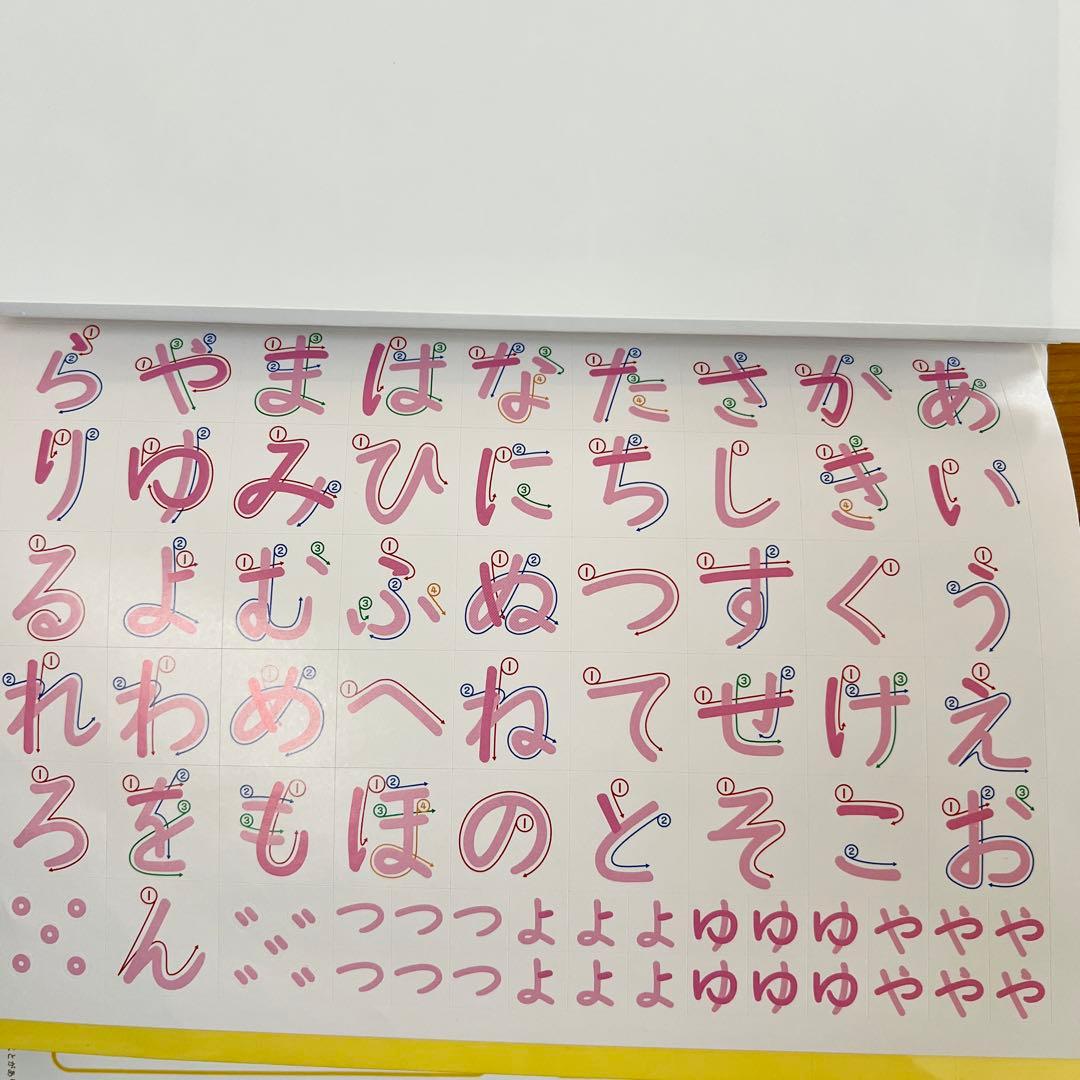 あいうえお
かきくけこ
さしすせそ
たちつてと
なにぬねの
はひふへほ
まみむめも
やゆよわを
らりるれろ
や や や ゆ ゆ ゆ よ よ よ つ つ つ
や や や ゆ ゆ ゆ よ よ よ つ つ つ
゛ ゛ ゛ ゛ ゛
ん
゜ ゜ ゜ ゜ ゜